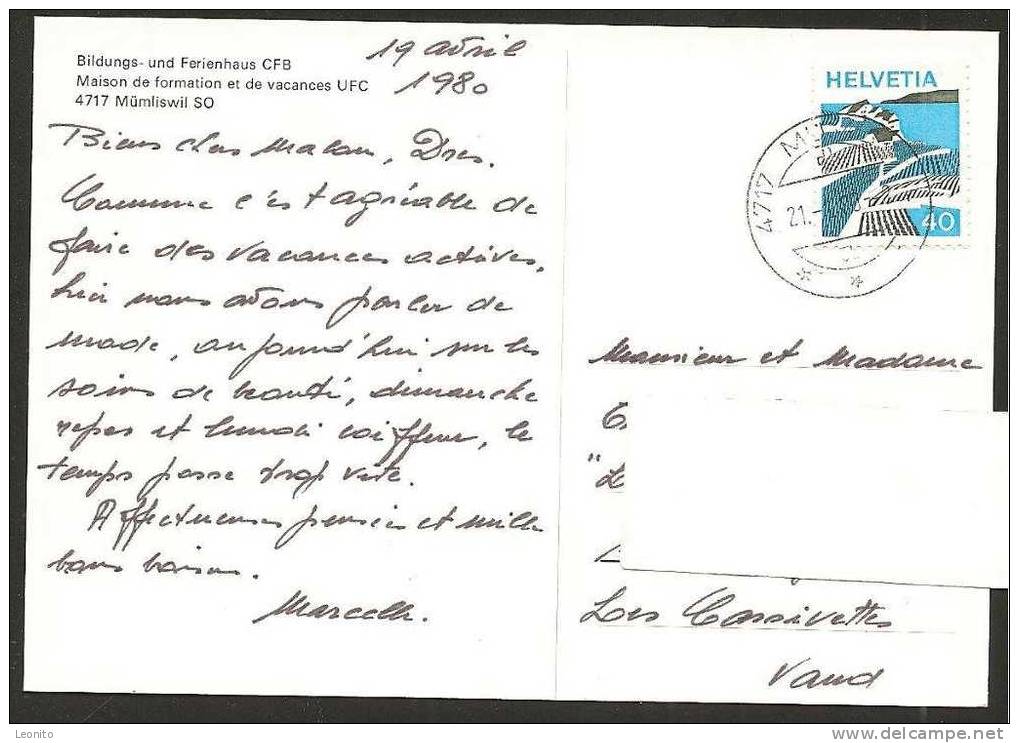 19 avril
1980
Bildungs- und Ferienhaus CFB
Maison de formation et de vacances UFC
4717 Mümliswil SO
Comme c'est agréable de
faire des vacances actives,
hier nous avons parler de
mode, aujourd'hui sur les
soins de beauté, dimanche
repas et lundi coiffeur, le
temps passe trop vite.
Affectueuses pensées et mille
bons baisers.
Marcelle.
HELVETIA
40
4717 MÜ
21.
Monsieur et Madame
Les
Vaud
Leonito
delcampe.net